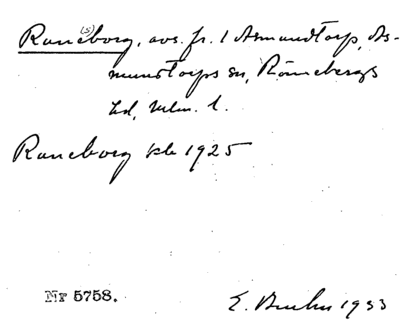 Rane(s)borg, avs. fr. 1 Asmundtorp, As-
mundtorps sn, Rönnebergs
hd, Mlm. l.
Raneborg kb 1925
Nr 5758.
E. 1933